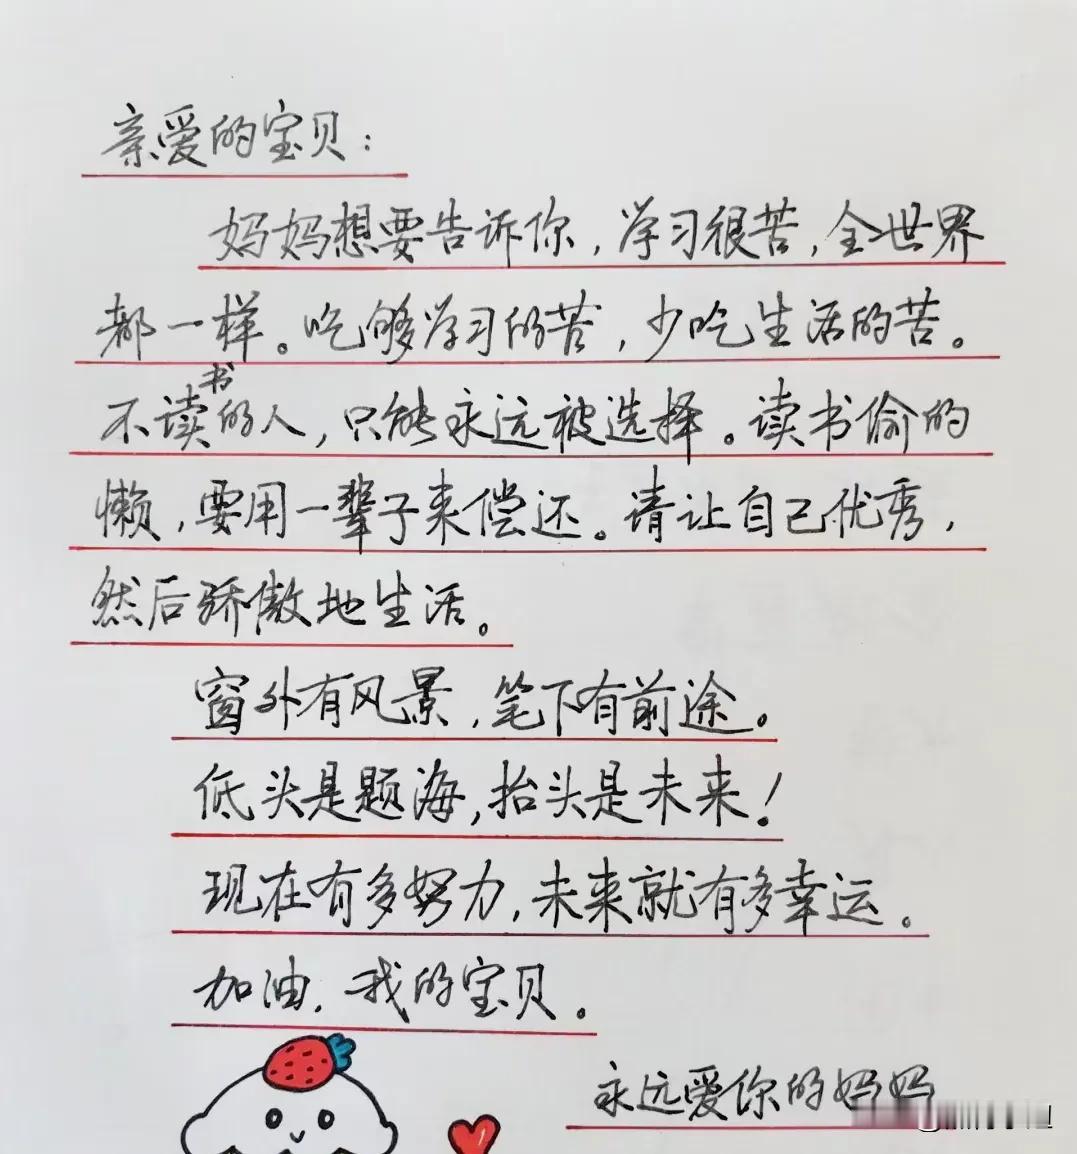 亲爱的宝贝:
妈妈想要告诉你,学习很苦,全世界
都一样。吃够学习的苦,少吃生活的苦。
不读书的人,只能永远被选择。读书偷的
懒,要用一辈子来偿还。请让自己优秀,
然后骄傲地生活。
窗外有风景,笔下有前途。
低头是题海,抬头是未来!
现在有多努力,未来就有多幸运。
加油,我的宝贝。
永远爱你的妈妈